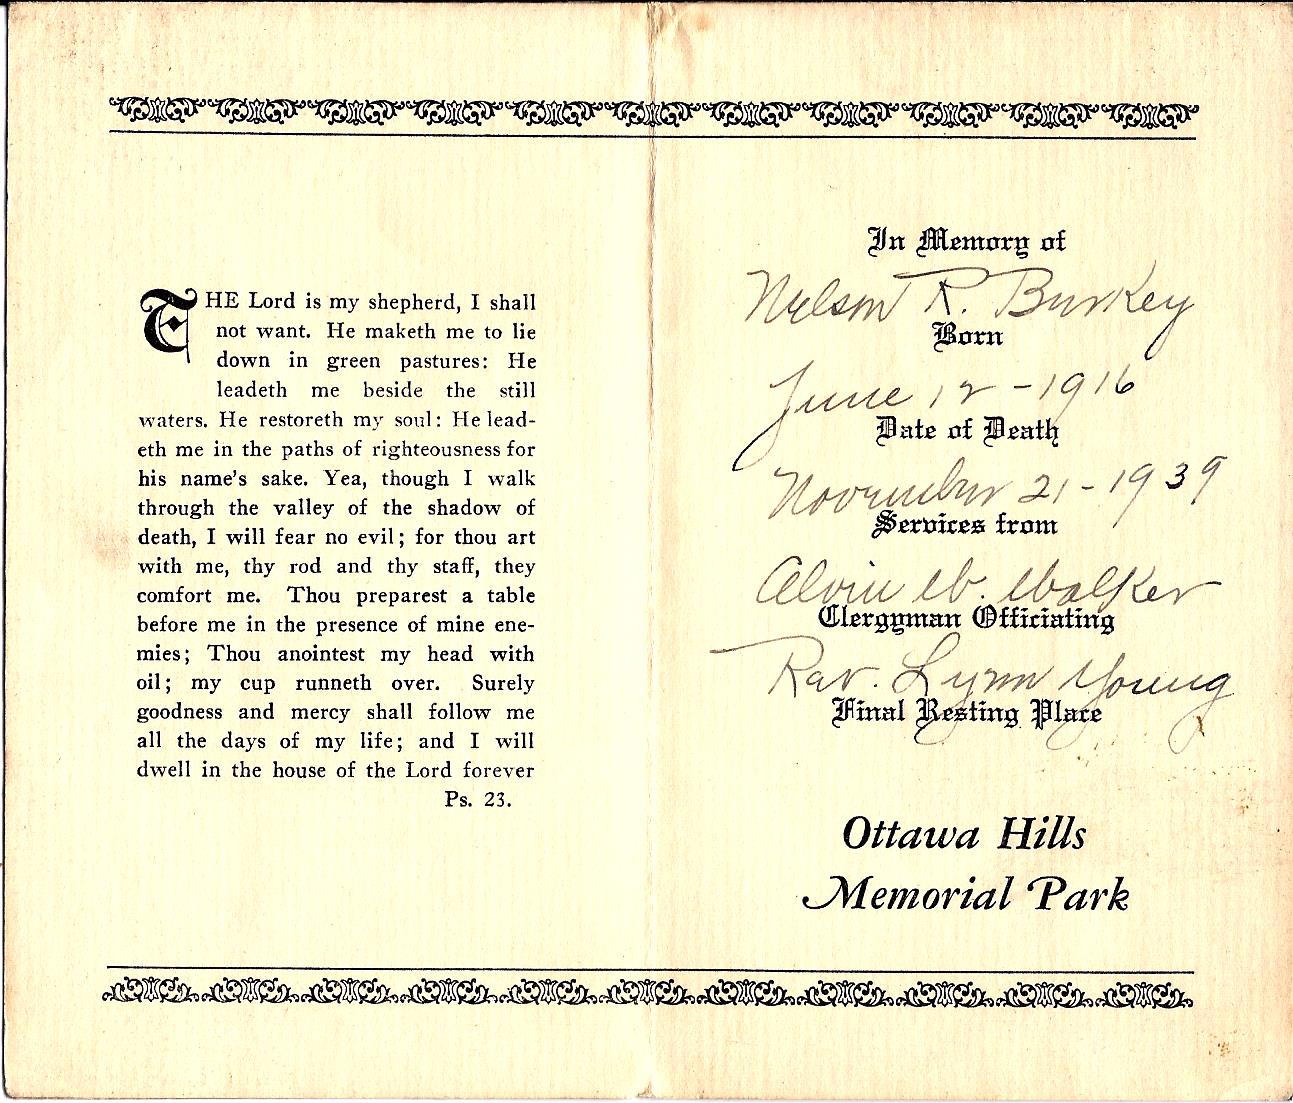 THE Lord is my shepherd, I shall
not want. He maketh me to lie
down in green pastures: He
leadeth me beside the still
waters. He restoreth my soul: He lead-
eth me in the paths of righteousness for
his name's sake. Yea, though I walk
through the valley of the shadow of
death, I will fear no evil; for thou art
with me, thy rod and thy staff, they
comfort me. Thou preparest a table
before me in the presence of mine ene-
mies; Thou anointest my head with
oil; my cup runneth over. Surely
goodness and mercy shall follow me
all the days of my life; and I will
dwell in the house of the Lord forever
Ps. 23.
In Memory of
Nelson R. Burkey
Born
June 12 - 1916
Date of Death
November 21 - 1939
Services from
Alvin W. Walker
Clergyman Officiating
Rev. Lynn Young
Final Resting Place
Ottawa Hills
Memorial Park